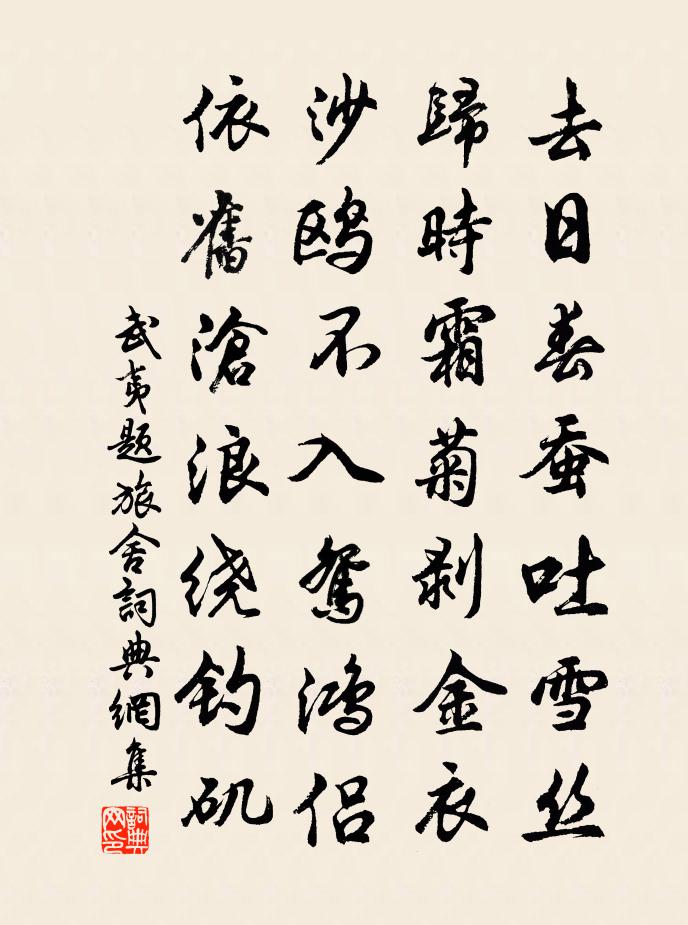 去日春蚕吐雪丝
歸時霜菊剥金衣
沙鸥不入鴛鴻侣
依舊滄浪绕钓矶
武夷题旅舍詞典網集
詞典
网印